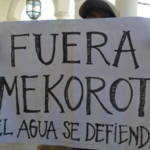 FUERA
MEKOROT
EL AGUA SE DEFIENDE